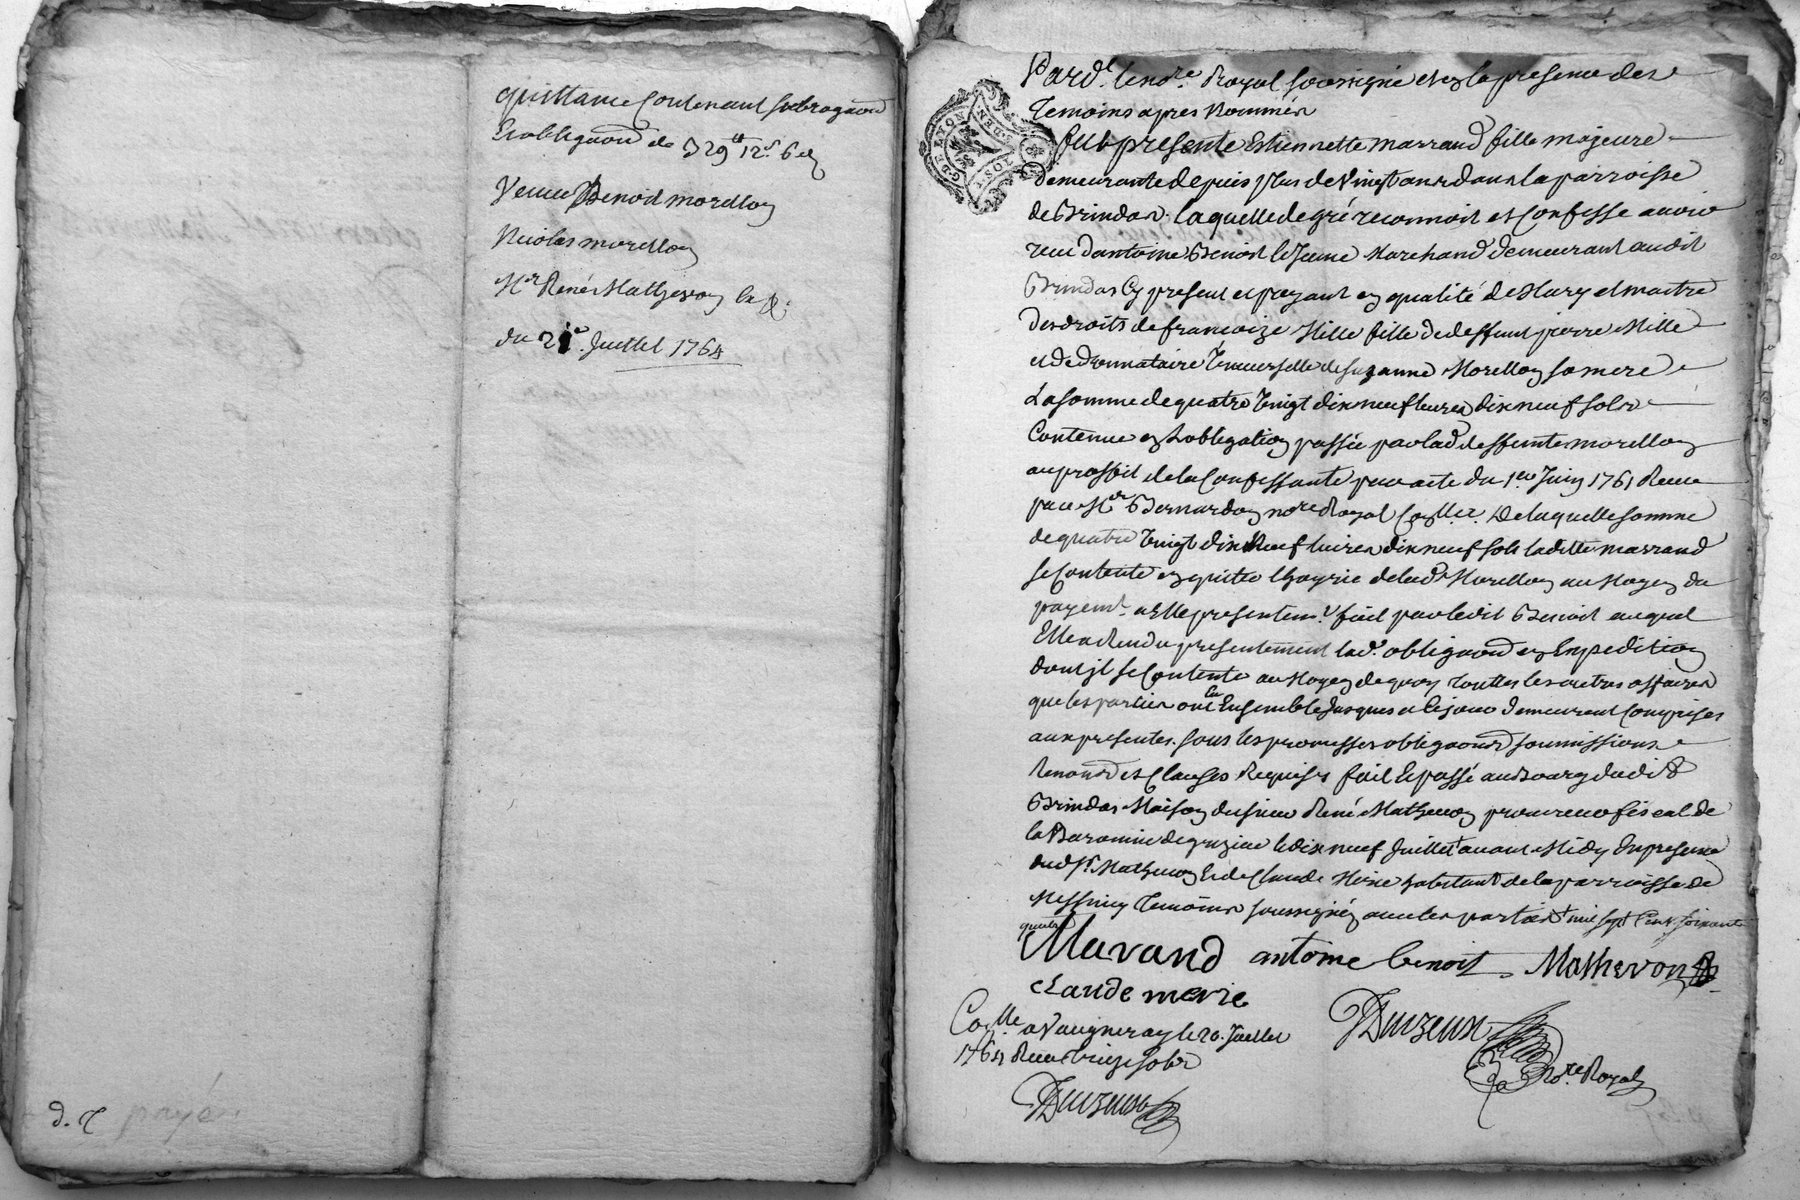 quittance Contenant subrogaõn
Et obligaõn de 329ᵗᵗ 12ˢ 6d
Veuve Benoit morellon
Nicolas morellon
Mᵉ René Mathevon
du 21ᵉ. Juillet 1764
d. payé
Pard.ᵗ le noʳᵉ Royal soussigné et en la presence des
temoins apres nommés
fut presente Estiennette marrand fille majeure
demeurante depuis plus de vingt ans dans la parroisse
de Brindas. laquelle de gré reconnoit et confesse avoir
reçu d'antoine Benoit le Jeune Marchand demeurant audit
Brindas Cy present et payant en qualité de Mary et maitre
des droits de françoize Mille fille de deffunt pierre Mille
et de donnataire Universelle de Suzanne Morellon sa mere
La somme de quatre Vingt dix neuf livres dix neuf sols
Contenue en L'obligation passée par lad. deffunte morellon
au proffit de la Confessante par acte du 1ᵉʳ Juin 1761 Reçu
par Mᵉ Bernardon noʳᵉ Royal Conˡˡᵉʳ. De laquelle somme
de quatre Vingt dix Neuf livres dix neuf sols laditte marrand
se Contente en quitte l'hoyrie de lad. Morellon au Moyen du
payemᵗ a Elle presentemᵗ fait par ledit Benoit auquel
Elle a Rendu presentement lad. obligaõn en Expedition
dont jl se Contente au Moyen de quoy touttes les autres affaires
que les parties ont Eu Ensemble Jusques a ce jour demeurent Comprises
aux presentes. sous les promesses obligaõns soumissions
Renonõns et Clauses Requises fait Et passé au Bourg dudit
Brindas Maison du sieur René Mathevon procureur fiscal de
la Baronnie de grezieu le dix neuf Juillet avant Midy En presence
dud. Sʳ Mathevon Et de Claude Merie habitant de la parroisse de
Messimy temoins soussignés avec les parties mil sept Cent soixante
quatre
Marand antoine benoit Mathevon
claude merie
Conˡˡᵉ a Vaugneray le 20. Juillet
1764 Reçu treize sols
Duzeuse
Noʳᵉ Royal
Duzeuse